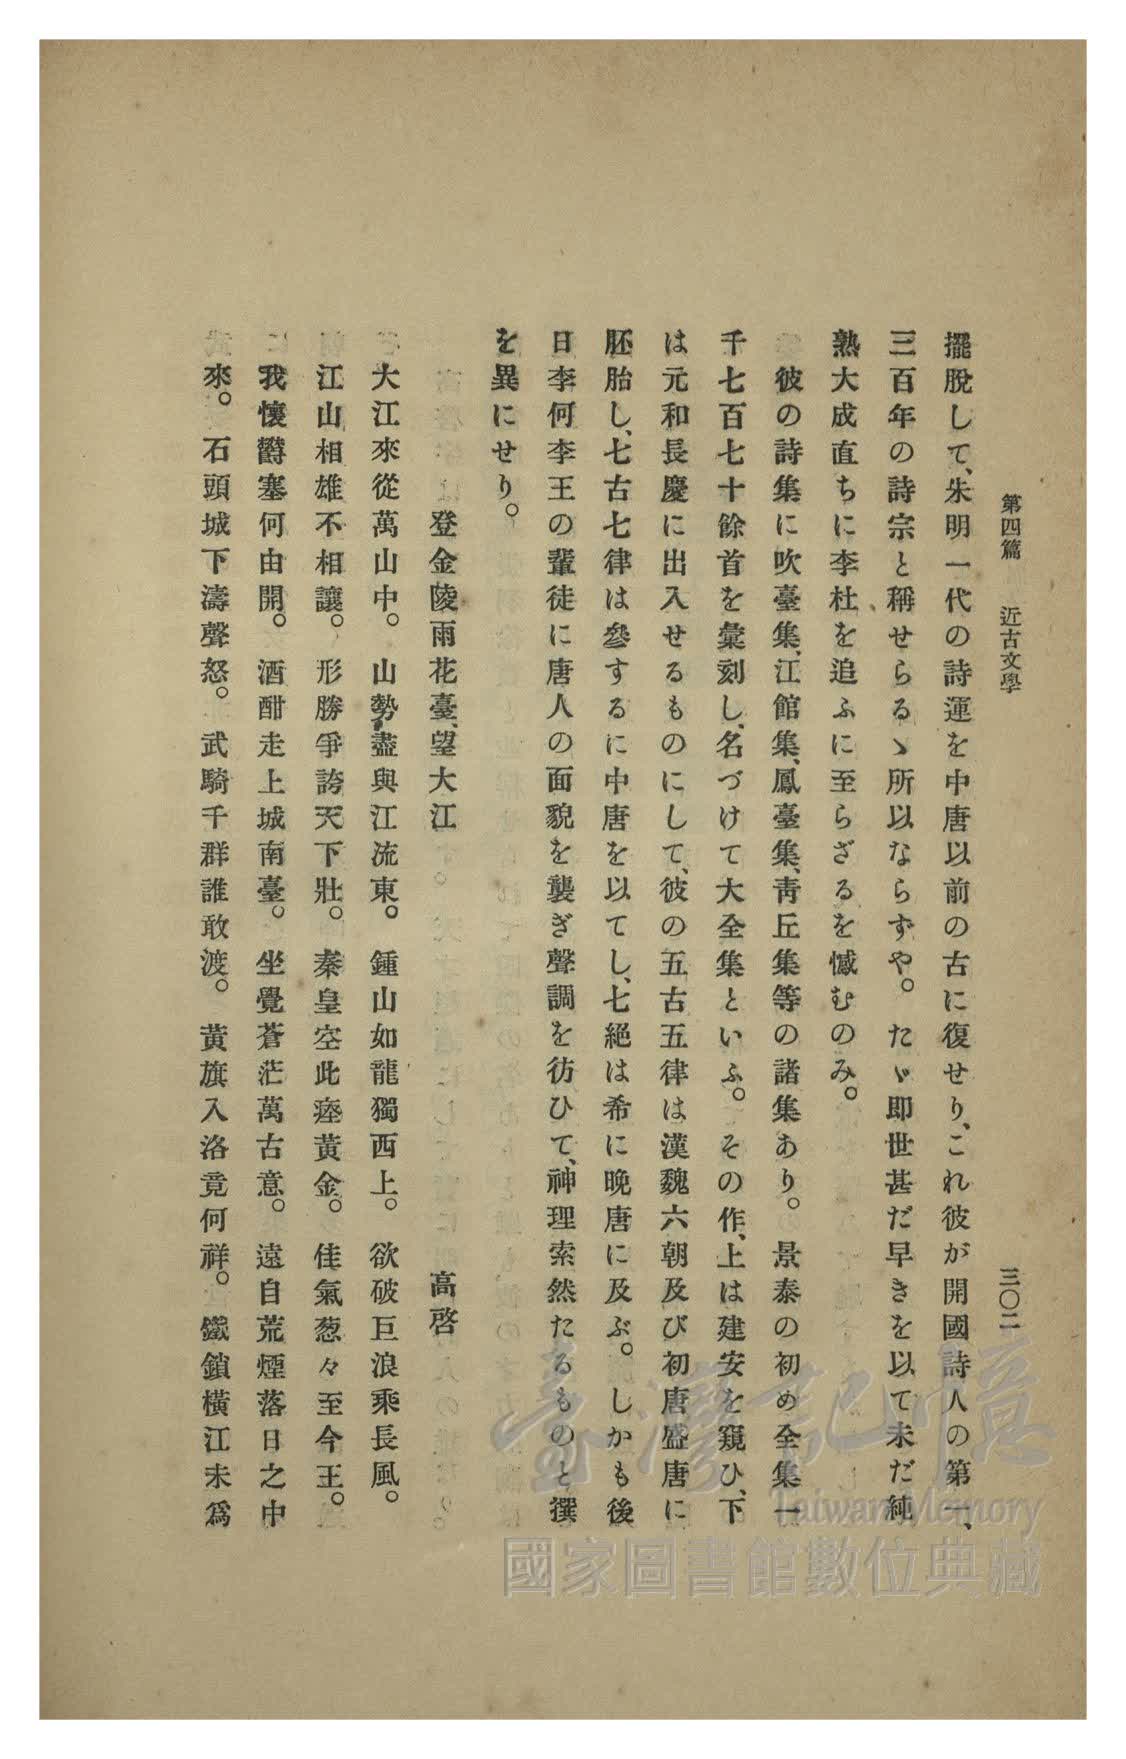 第四篇 近古文學 三〇二
擺脫して、朱明一代の詩運を中唐以前の古に復せり、これ彼が開國詩人の第一、
三百年の詩宗と稱せらるゝ所以ならずや。たゞ即世甚だ早きを以て未だ純
熟大成直ちに李杜を追ふに至らざるを憾むのみ。
彼の詩集に吹臺集、江館集、鳳臺集、靑丘集等の諸集あり。景泰の初め全集一
千七百七十餘首を彙刻し、名づけて大全集といふ。その作、上は建安を窺ひ、下
は元和長慶に出入せるものにして、彼の五古五律は漢魏六朝及び初唐盛唐に
胚胎し、七古七律は參するに中唐を以てし、七絕は希に晩唐に及ぶ。しかも後
日李何李王の輩徒に唐人の面貌を襲ぎ聲調を彷ひて、神理索然たるものと撰
を異にせり。
登金陵雨花臺、望大江 高啓
大江來從萬山中。山勢盡與江流東。鍾山如龍獨西上。欲破巨浪乘長風。
江山相雄不相讓。形勝爭誇天下壯。秦皇空此瘞黃金。佳氣葱々至今王。
我懷欝塞何由開。酒酣走上城南臺。坐覺蒼茫萬古意。遠自荒煙落日之中
來。石頭城下濤聲怒。武騎千群誰敢渡。黃旗入洛竟何祥。鐵鎖橫江未爲
臺灣記憶
Taiwan Memory
國家圖書館數位典藏